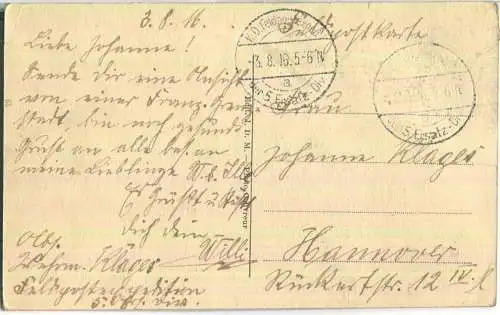 3.8.16
Feldpostkarte
Liebe Johanne!
Sende dir eine Ansicht
von einer Franz. Grenz
Stadt, bin noch gesund
Gruß an alle bes. an
meine Lieblinge
Es Grüßt u. Küßt
dich dein
Willi
Abs.
Wehrm. Klages
Feldpostexpedition
5. Ers. Div.
K.D. Feldpostexped.
3.8.16.5-6N
a
der 5. Ersatz-Div
der 5. Ersatz-Div
Frau
Johanne Klages
Hannover
Rückertstr. 12 IV.